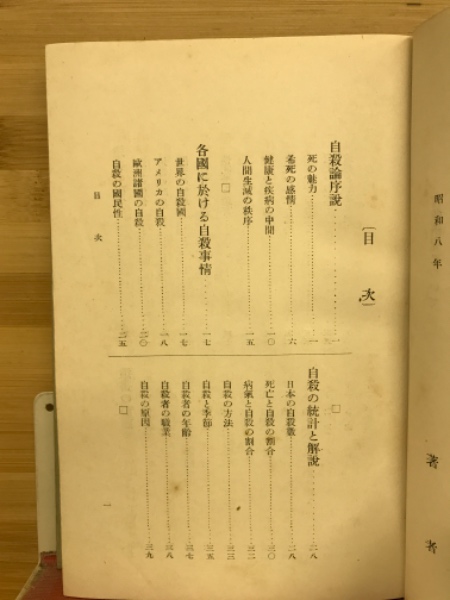 昭和八年
著者
〔目次〕
自殺論序説………一
死の魅力………一
希死の感情………六
健康と疾病の中間………一〇
人間生滅の秩序………一五
□
各國に於ける自殺事情………一七
世界の自殺國………一七
アメリカの自殺………一八
歐洲諸國の自殺………二〇
自殺の國民性………二五
□
自殺の統計と解説………二八
日本の自殺數………二八
死亡と自殺の割合………三〇
病氣と自殺の割合………三二
自殺の方法………三三
自殺と季節………三五
自殺者の年齡………三七
自殺者の職業………三八
自殺の原因………三九
目次
一